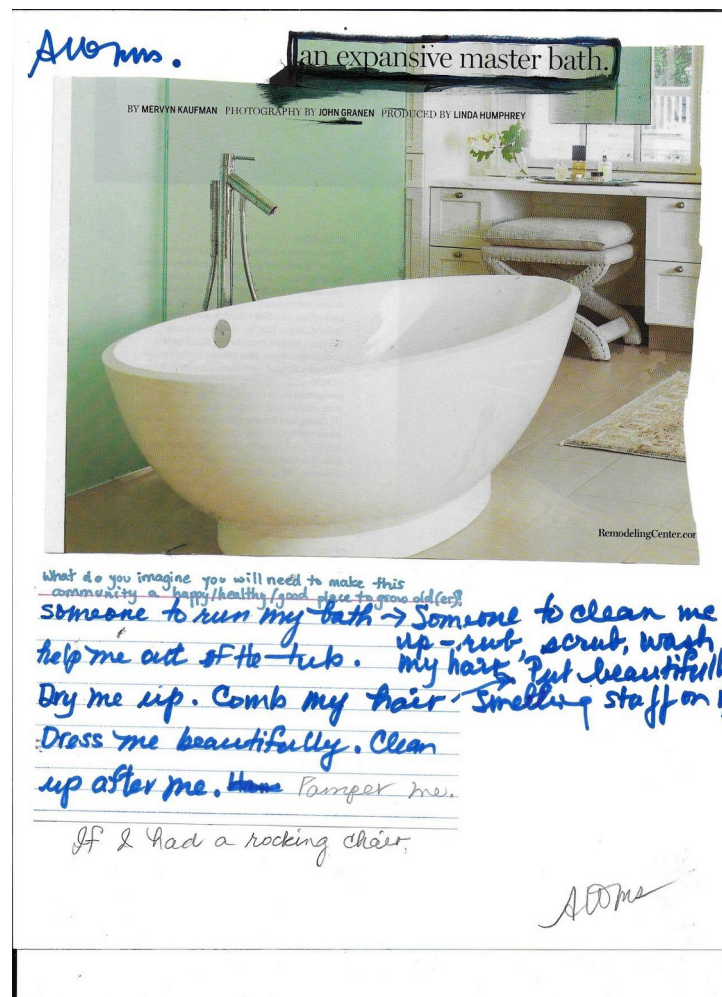 an expansive master bath.
BY MERVYN KAUFMAN PHOTOGRAPHY BY JOHN GRANEN PRODUCED BY LINDA HUMPHREY
RemodelingCenter.com
What do you imagine you will need to make this
community a happy/healthy/good place to grow old(er)?
someone to run my bath → Someone to clean me
up - rub, scrub, wash
help me out of the tub. my hair, Put beautifully
Dry me up. Comb my hair smelling staff on
Dress me beautifully. Clean
up after me. Pamper me.
If I had a rocking chair.